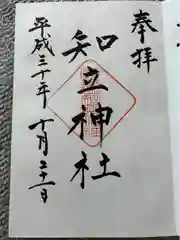 奉拝
知立神社
平成三十年十月二十一日